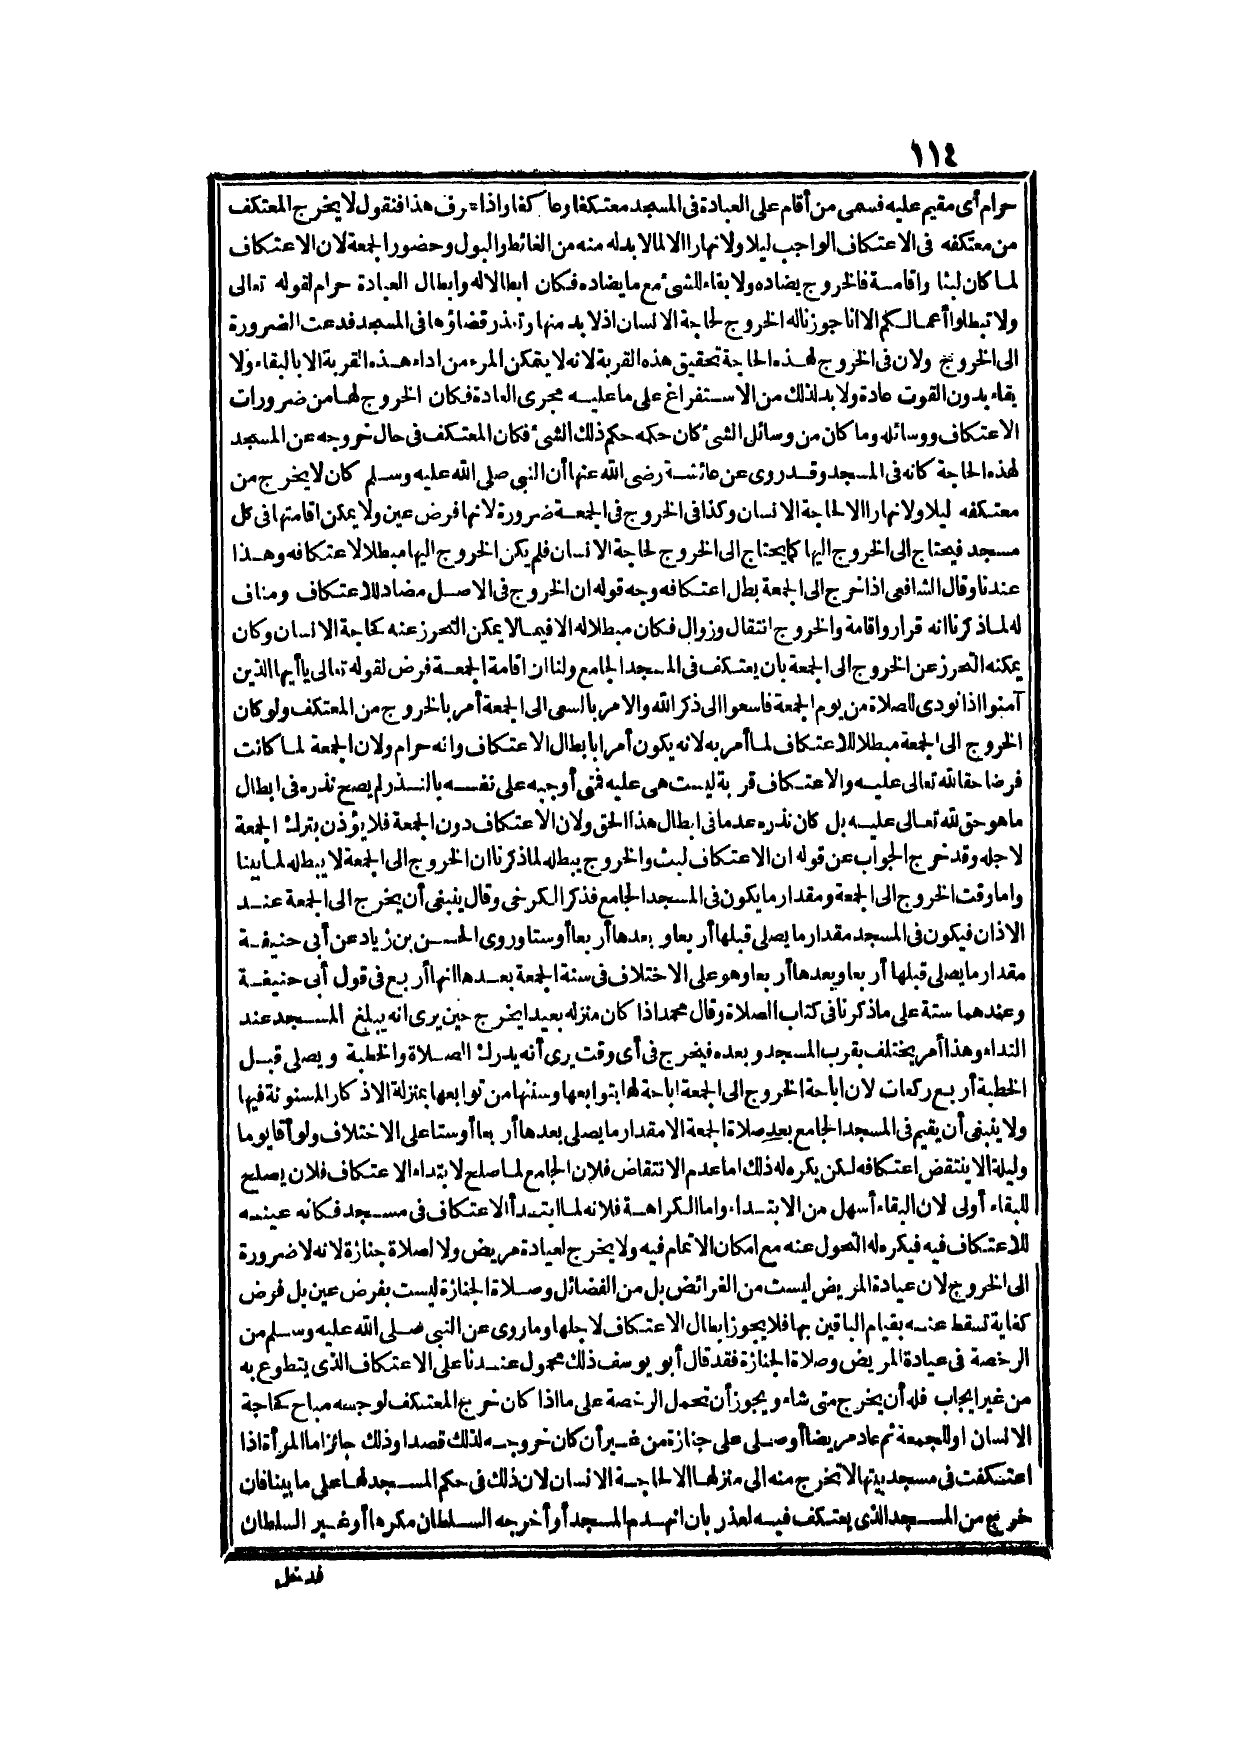 ١١٤
حرام أى مقيم عليه فسمى من أقام على العبادة فى المسجد معتكفا وعاكفا واذا عرف هذا فنقول لا يخرج المعتكف
من معتكفه فى الاعتكاف الواجب ليلا ولا نهارا الا لما لا بد له منه من الغائط والبول وحضور الجمعة لان الاعتكاف
لما كان لبثا واقامة فالخروج يضاده ولا بقاء للشئ مع ما يضاده فكان ابطالا له وابطال العبادة حرام لقوله تعالى
ولا تبطلوا أعمالكم الا انا جوزنا له الخروج لحاجة الانسان اذ لا بد منها وتعذر قضاؤها فى المسجد فدعت الضرورة
الى الخروج ولان فى الخروج لهذه الحاجة تحقيق هذه القربة لانه لا يتمكن المرء من اداء هذه القربة الا بالبقاء ولا
بقاء بدون القوت عادة ولا بد لذلك من الاستفراغ على ما عليه مجرى العادة فكان الخروج لها من ضرورات
الاعتكاف ووسائله وما كان من وسائل الشئ كان حكمه حكم ذلك الشئ فكان المعتكف فى حال خروجه عن المسجد
لهذه الحاجة كانه فى المسجد وقد روى عن عائشة رضى الله عنها أن النبى صلى الله عليه وسلم كان لا يخرج من
معتكفه ليلا ولا نهارا الا لحاجة الانسان وكذا فى الخروج فى الجمعة ضرورة لانها فرض عين ولا يمكن اقامتها فى كل
مسجد فيحتاج الى الخروج اليها كما يحتاج الى الخروج لحاجة الانسان فلم يكن الخروج اليها مبطلا لاعتكافه وهذا
عندنا وقال الشافعى اذا خرج الى الجمعة بطل اعتكافه وجه قوله ان الخروج فى الاصل مضاد للاعتكاف ومناف
له لما ذكرنا انه قرار واقامة والخروج انتقال وزوال فكان مبطلا له الا فيما لا يمكن التحرز عنه كحاجة الانسان وكان
يمكنه التحرز عن الخروج الى الجمعة بان يعتكف فى المسجد الجامع ولنا ان اقامة الجمعة فرض لقوله تعالى يا أيها الذين
آمنوا اذا نودى للصلاة من يوم الجمعة فاسعوا الى ذكر الله والامر بالسعى الى الجمعة أمر بالخروج من المعتكف ولو كان
الخروج الى الجمعة مبطلا للاعتكاف لما أمر به لانه يكون أمرا بابطال الاعتكاف وانه حرام ولان الجمعة لما كانت
فرضا حقا لله تعالى عليه والاعتكاف قربة ليست هى عليه فمتى أوجبه على نفسه بالنذر لم يصح نذره فى ابطال
ما هو حق لله تعالى عليه بل كان نذره عدما فى ابطال هذا الحق ولان الاعتكاف دون الجمعة فلا يؤذن بترك الجمعة
لاجله وقد خرج الجواب عن قوله ان الاعتكاف لبث والخروج يبطله لما ذكرنا ان الخروج الى الجمعة لا يبطله لما بينا
واما وقت الخروج الى الجمعة ومقدار ما يكون فى المسجد الجامع فذكر الكرخى وقال ينبغى أن يخرج الى الجمعة عند
الاذان فيكون فى المسجد مقدار ما يصلى قبلها أربعا وبعدها أربعا أو ستا وروى الحسن بن زياد عن أبى حنيفة
مقدار ما يصلى قبلها أربعا وبعدها أربعا وهو على الاختلاف فى سنة الجمعة بعدها انها أربع فى قول أبى حنيفة
وعندهما ستة على ما ذكرنا فى كتاب الصلاة وقال محمد اذا كان منزله بعيدا يخرج حين يرى انه يبلغ المسجد عند
النداء وهذا أمر يختلف بقرب المسجد وبعده فيخرج فى أى وقت يرى أنه يدرك الصلاة والخطبة ويصلى قبل
الخطبة أربع ركعات لان اباحة الخروج الى الجمعة اباحة لها بتوابعها وسننها من توابعها بمنزلة الاذكار المسنونة فيها
ولا ينبغى أن يقيم فى المسجد الجامع بعد صلاة الجمعة الا مقدار ما يصلى بعدها أربعا أو ستا على الاختلاف ولو أقام يوما
وليلة لا ينتقض اعتكافه لكن يكره له ذلك اما عدم الانتقاض فلان الجامع لما صلح لابتداء الاعتكاف فلان يصلح
للبقاء أولى لان البقاء أسهل من الابتداء واما الكراهة فلانه لما ابتدأ الاعتكاف فى مسجد فكانه عينه
للاعتكاف فيه فيكره له التحول عنه مع امكان الاتمام فيه ولا يخرج لعيادة مريض ولا لصلاة جنازة لانه لا ضرورة
الى الخروج لان عيادة المريض ليست من الفرائض بل من الفضائل وصلاة الجنازة ليست بفرض عين بل فرض
كفاية تسقط عنه بقيام الباقين بها فلا يجوز ابطال الاعتكاف لاجلها وما روى عن النبى صلى الله عليه وسلم من
الرخصة فى عيادة المريض وصلاة الجنازة فقد قال أبو يوسف ذلك محمول عندنا على الاعتكاف الذى يتطوع به
من غير ايجاب فله أن يخرج متى شاء ويجوز أن تحمل الرخصة على ما اذا كان خرج المعتكف لوجه مباح كحاجة
الانسان او للجمعة ثم عاد مريضا أو صلى على جنازة من غير أن كان خروجه لذلك قصدا وذلك جائز اما المرأة اذا
اعتكفت فى مسجد بيتها لا تخرج منه الى منزلها الا لحاجة الانسان لان ذلك فى حكم المسجد لها على ما بينا فان
خرج من المسجد الذى يعتكف فيه لعذر بان انهدم المسجد أو أخرجه السلطان مكرها أو غير السلطان
فدخل